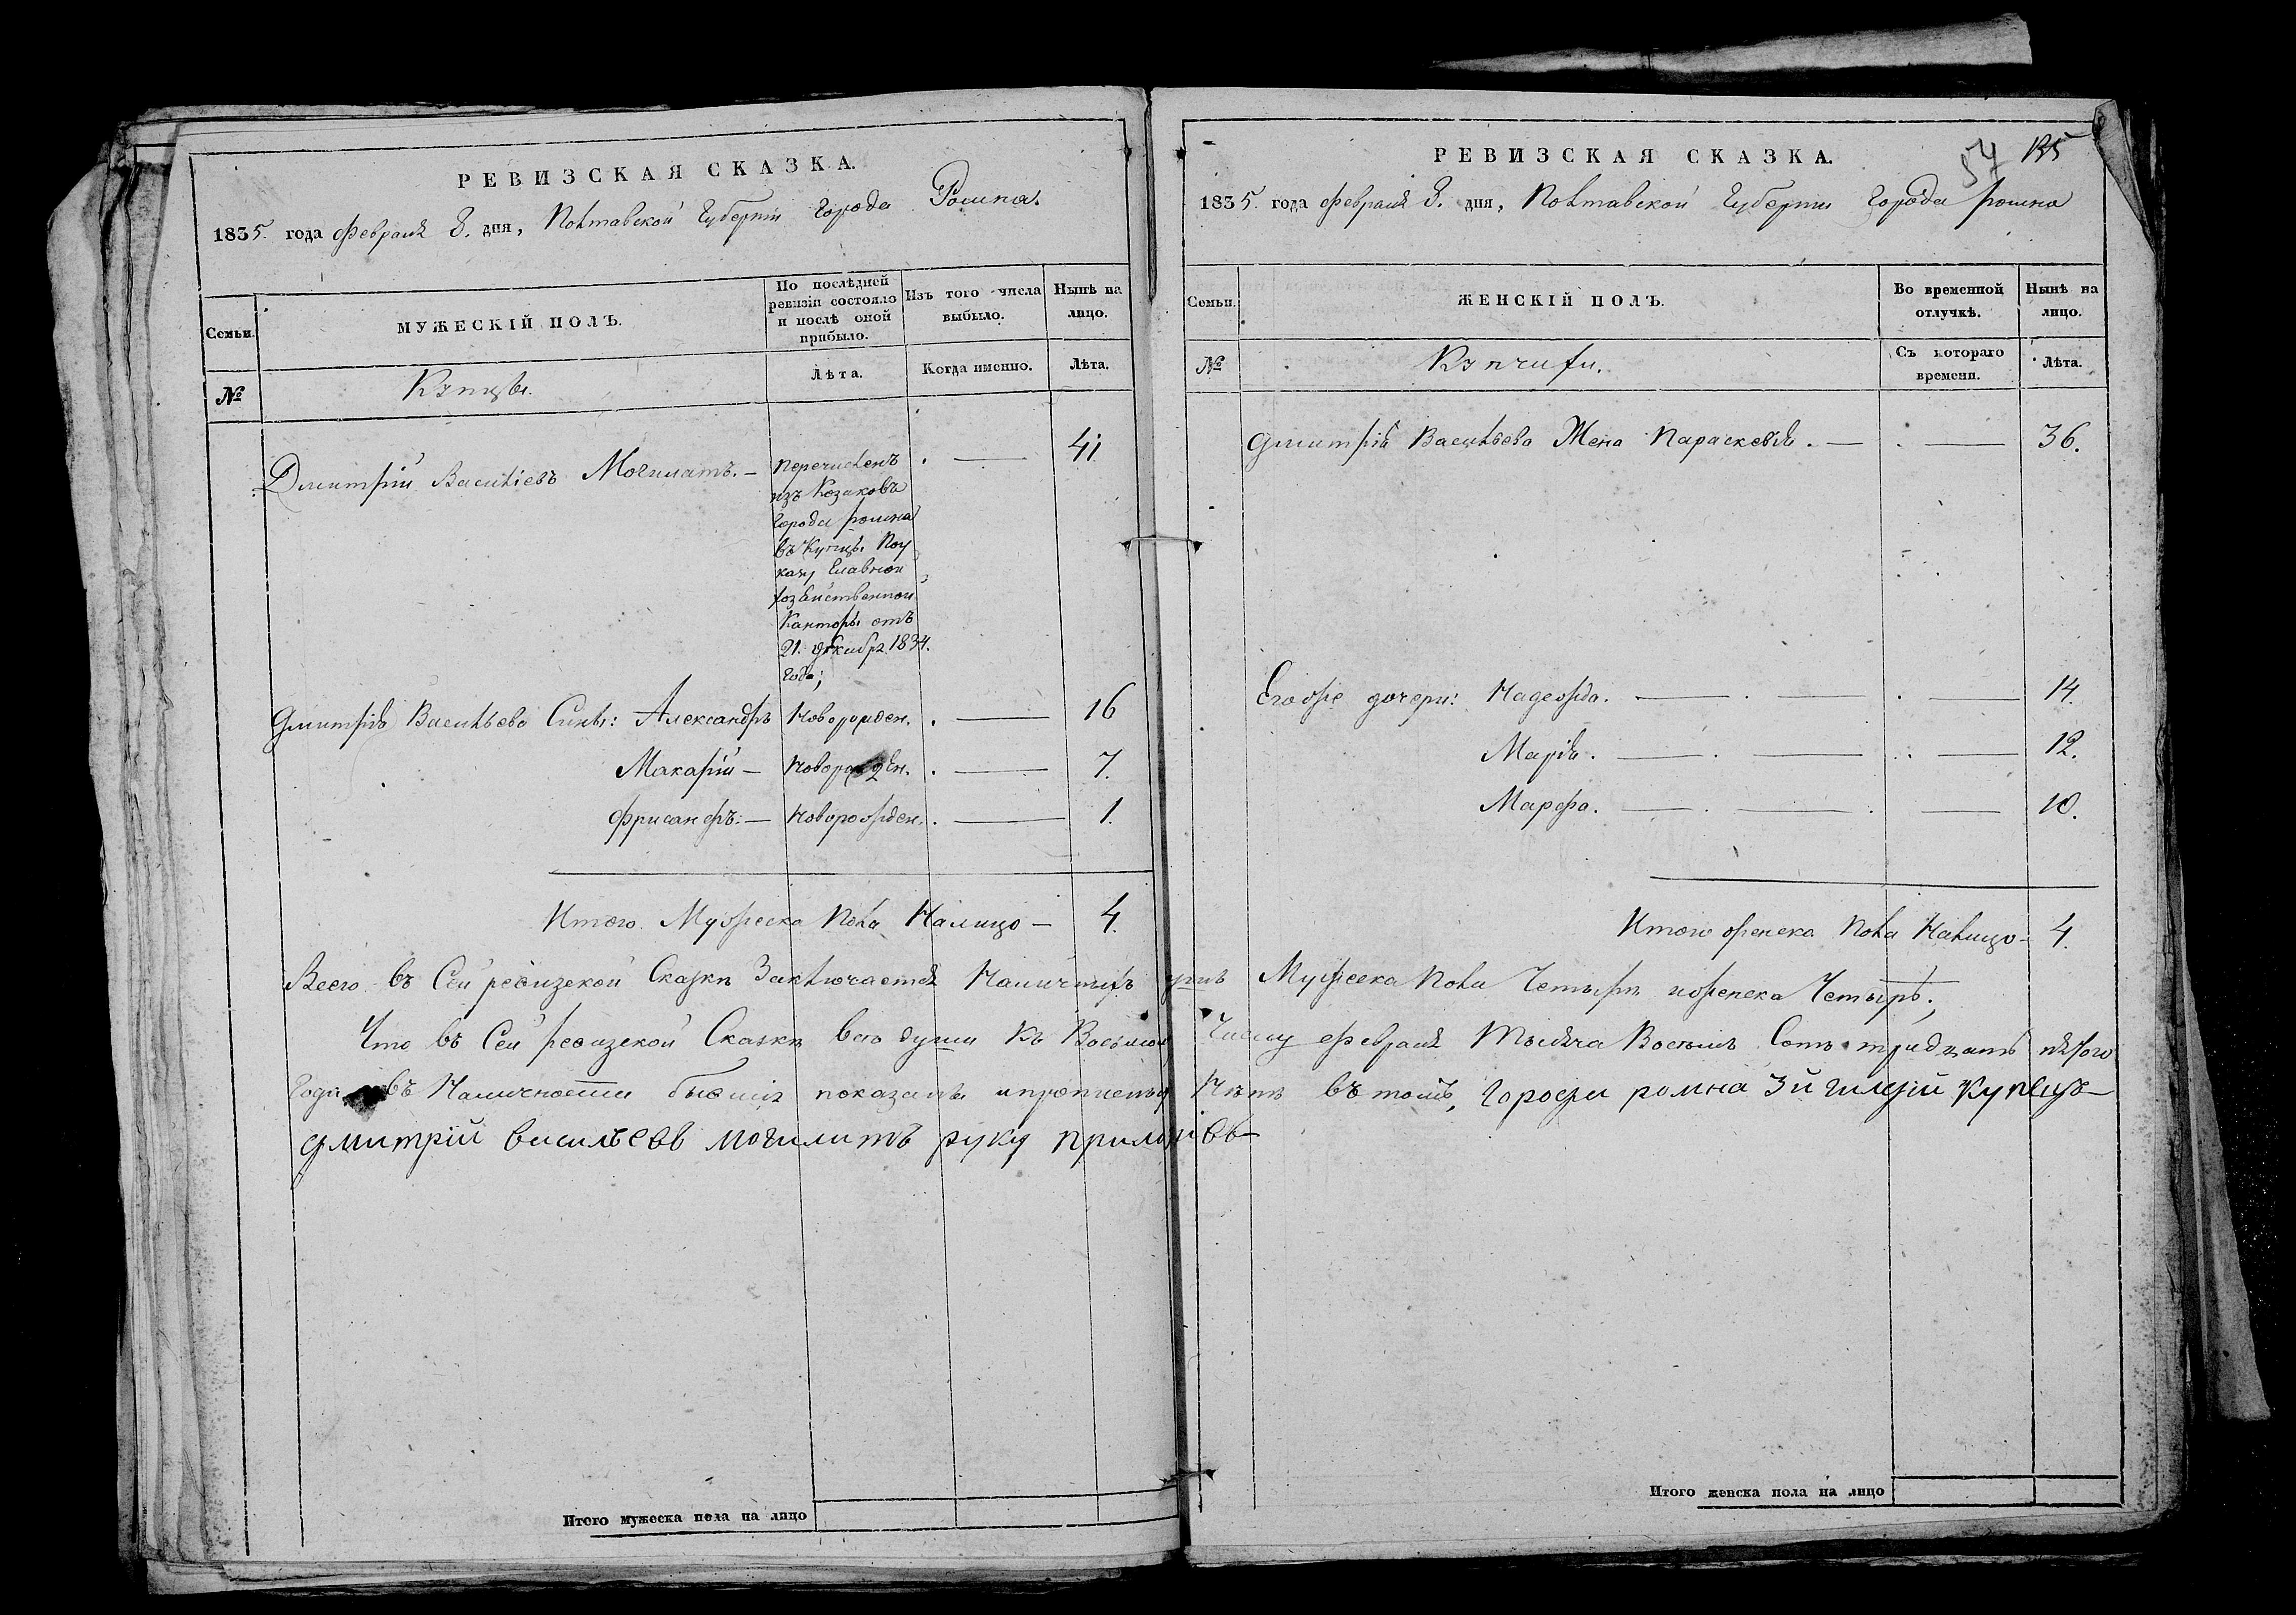 РЕВИЗСКАЯ СКАЗКА.
1835. года февраля 8. дня, Полтавской Губерніи Города Ромна.
Семьи.
МУЖЕСКІЙ ПОЛЪ.
По послѣдней ревизіи состояло и послѣ оной прибыло.
Изъ того числа выбыло.
Нынѣ на лицо.
№
Купцы.
Лѣта.
Когда именно.
Лѣта.
Дмитрій Василіевъ Могилатъ. — 41
перечисленъ
изъ Козаковъ
Города ромна
въ Купцы Поу
казу Главной
хозяйственной
Канторы отъ
21. декабр. 1834.
Года;
Дмитрія Васильева Сины: Александръ Новорожден. — 16
Макарій — Новорожден. — 7.
Фрисанфъ: — Новорожден. — 1.
Итого Мужеска Пола Налицо — 4.
РЕВИЗСКАЯ СКАЗКА.
57 135
1835. года февраля 8. дня, Полтавской Губерніи Города ромна
Семьи.
ЖЕНСКІЙ ПОЛЪ.
Во временной отлучкѣ.
Нынѣ на лицо.
№
Купчихи.
Съ котораго времени.
Лѣта.
Дмитрія Васильева Жена Параскевія. — 36.
Егоже дочери: Надежда. — 14.
Марія. — 12.
Марфа. — 10.
Итого женска Пола Налицо — 4.
Всего въ Сей ревизской Сказкѣ Заключается Наличныхъ душъ Мужеска Пола Четыре иженска Четырѣ;
Что въ Сей ревизской Сказкѣ всѣ души къ Восьмому Числу февраля Тысяча Восемь Сотъ тридцать пятого
Года въ Наличности бывшія показаны ипрописныхъ Нѣтъ въ томъ, города ромна 3й гилдіи купецъ
дмитрій васильевъ могилатъ руку приложівъ
Итого мужеска пола на лицо
Итого женска пола на лицо